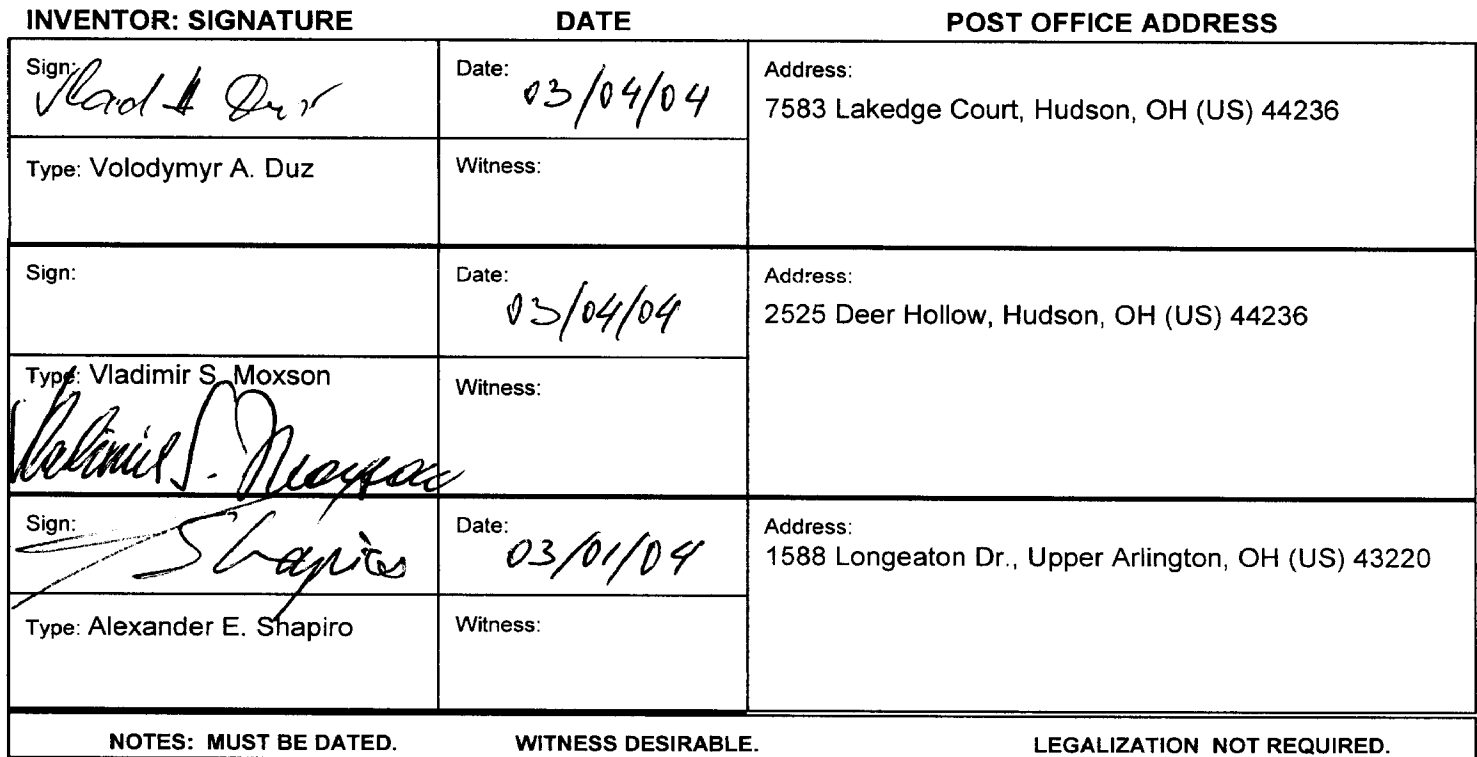 INVENTOR: SIGNATURE DATE POST OFFICE ADDRESS
Sign: Vlad A Duz Date: 03/04/04 Address:
7583 Lakedge Court, Hudson, OH (US) 44236
Type: Volodymyr A. Duz Witness:
Sign: Date: 03/04/04 Address:
2525 Deer Hollow, Hudson, OH (US) 44236
Type: Vladimir S. Moxson Witness:
Vladimir S. Moxson
Sign: Shapiro Date: 03/01/04 Address:
1588 Longeaton Dr., Upper Arlington, OH (US) 43220
Type: Alexander E. Shapiro Witness:
NOTES: MUST BE DATED. WITNESS DESIRABLE. LEGALIZATION NOT REQUIRED.